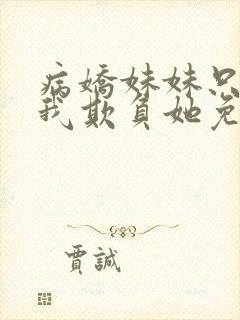 病嬌妹妹只
我欺負她免
賈誠